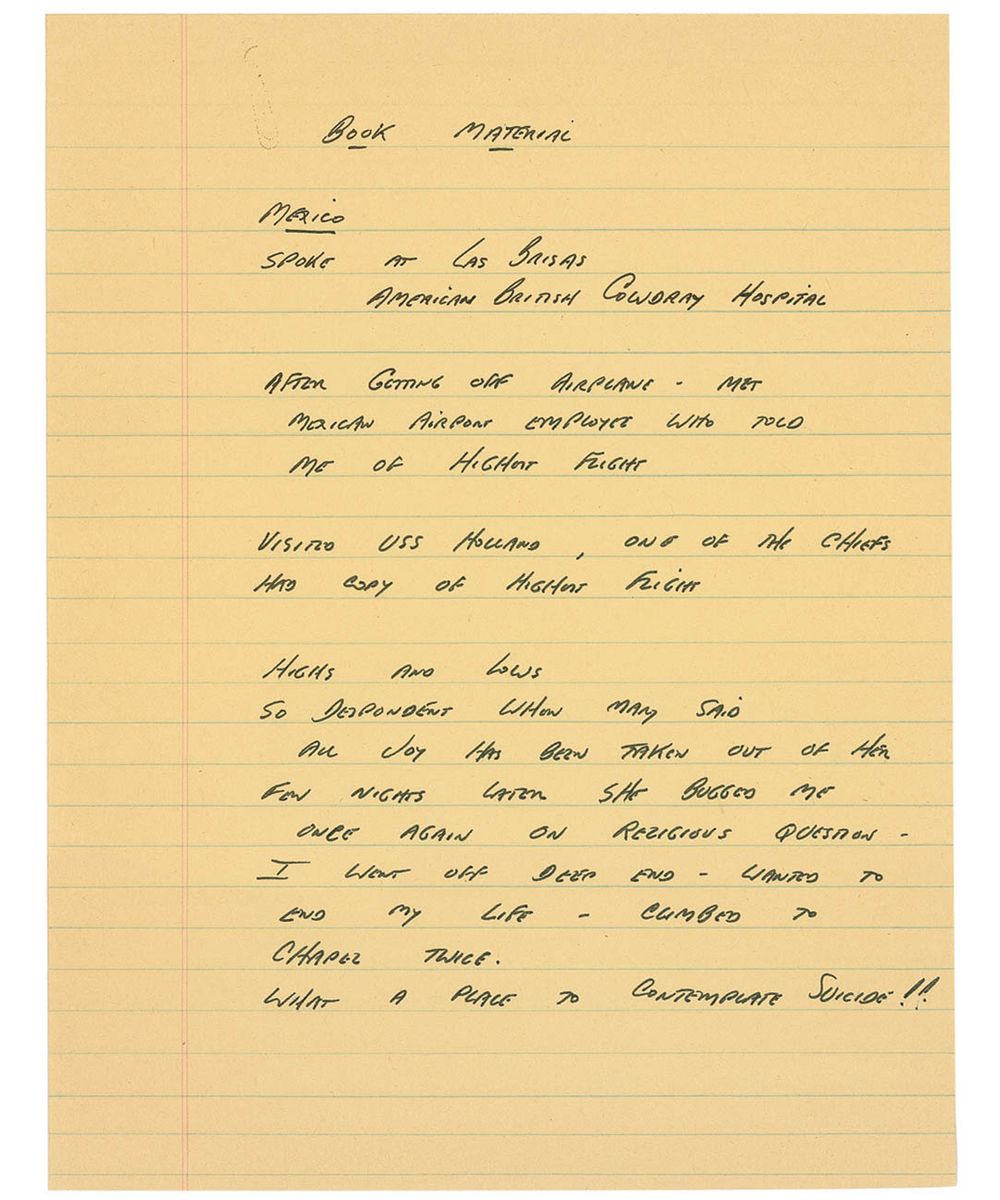 BOOK MATERIAL
MEXICO
SPOKE AT LAS BRISAS
AMERICAN BRITISH COWDRAY HOSPITAL
AFTER GETTING OFF AIRPLANE - MET
MEXICAN AIRPORT EMPLOYEE WHO TOLD
ME OF HIGHEST FLIGHT
VISITED USS HOLLAND, ONE OF THE CHIEFS
HAD COPY OF HIGHEST FLIGHT
HIGHS AND LOWS
SO DESPONDENT WHEN MARY SAID
ALL JOY HAS BEEN TAKEN OUT OF HER
FEW NIGHTS LATER SHE BUGGED ME
ONCE AGAIN ON RELIGIOUS QUESTION -
I WENT OFF DEEP END - WANTED TO
END MY LIFE - CLIMBED TO
CHAPEL TWICE.
WHAT A PLACE TO CONTEMPLATE SUICIDE!!